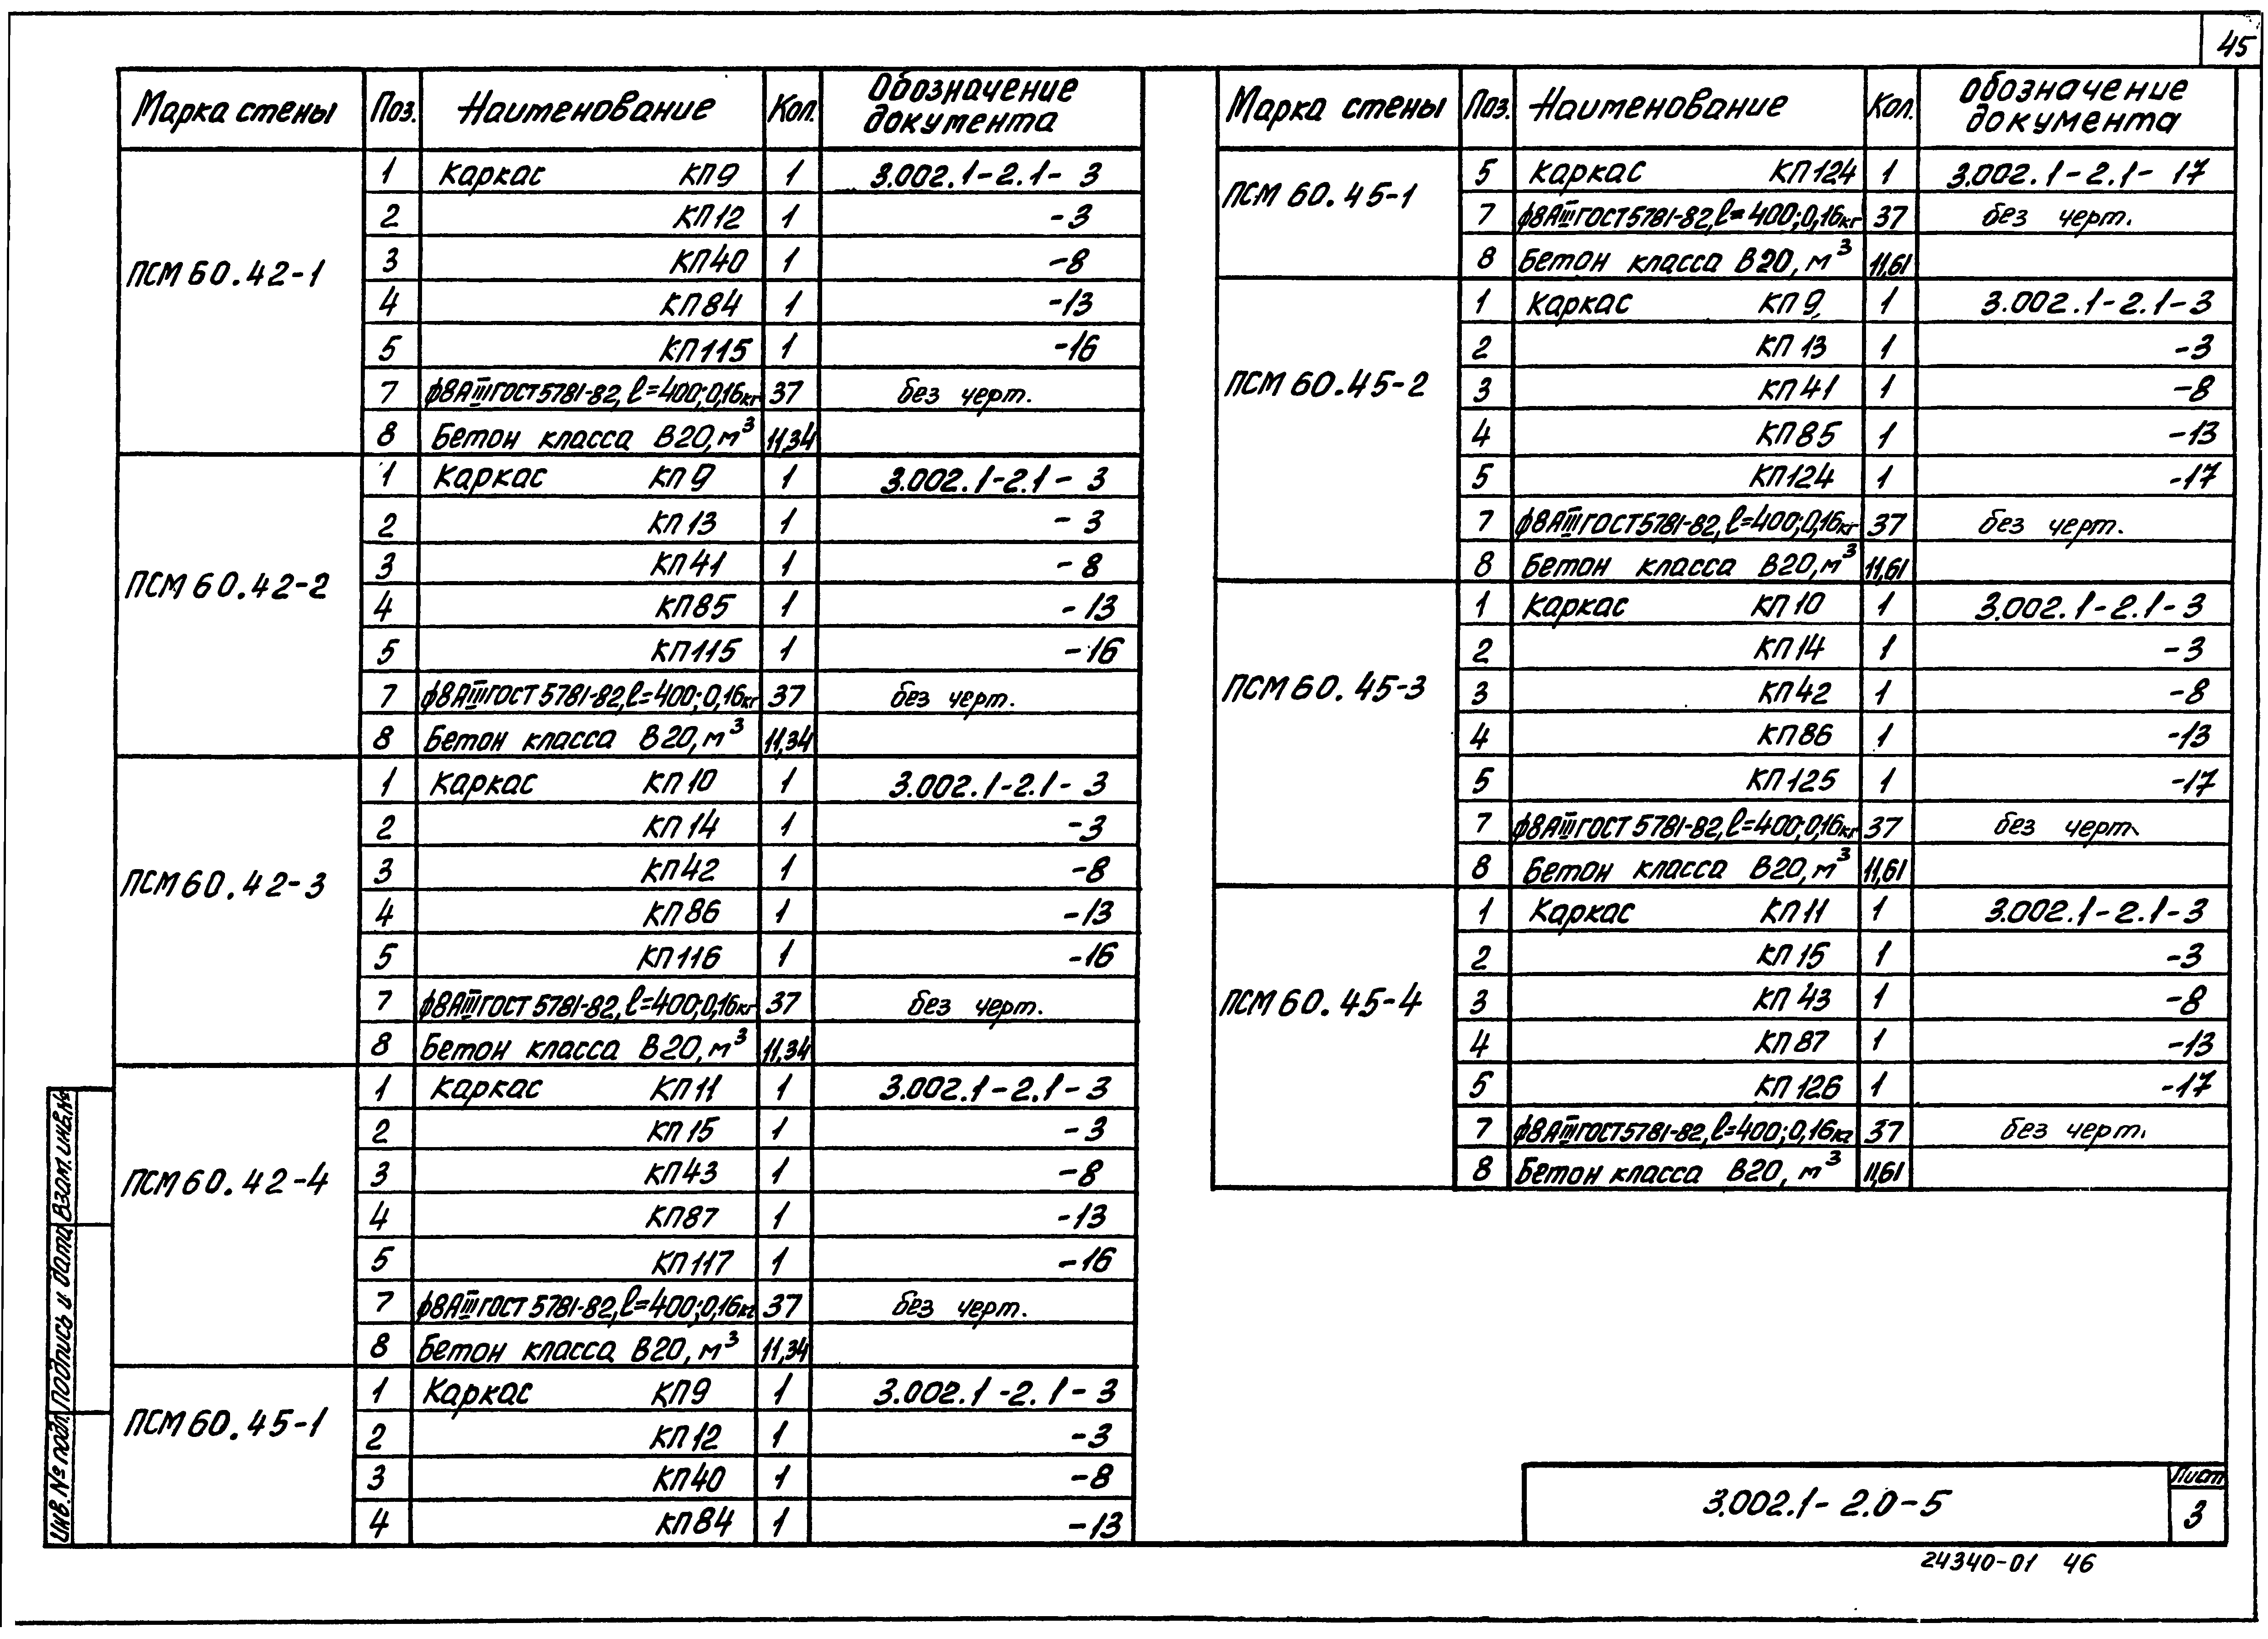 45
Марка стены Поз. Наименование Кол. Обозначение документа
ПСМ 60.42-1
1 Каркас КП9 1 3.002.1-2.1-3
2 КП12 1 -3
3 КП40 1 -8
4 КП84 1 -13
5 КП115 1 -16
7 ф8АIII ГОСТ 5781-82, ℓ=400; 0,16кг 37 без черт.
8 Бетон класса В20, м³ 11,34
ПСМ 60.42-2
1 Каркас КП9 1 3.002.1-2.1-3
2 КП13 1 -3
3 КП41 1 -8
4 КП85 1 -13
5 КП115 1 -16
7 ф8АIII ГОСТ 5781-82, ℓ=400; 0,16кг 37 без черт.
8 Бетон класса В20, м³ 11,34
ПСМ 60.42-3
1 Каркас КП10 1 3.002.1-2.1-3
2 КП14 1 -3
3 КП42 1 -8
4 КП86 1 -13
5 КП116 1 -16
7 ф8АIII ГОСТ 5781-82, ℓ=400; 0,16кг 37 без черт.
8 Бетон класса В20, м³ 11,34
ПСМ 60.42-4
1 Каркас КП11 1 3.002.1-2.1-3
2 КП15 1 -3
3 КП43 1 -8
4 КП87 1 -13
5 КП117 1 -16
7 ф8АIII ГОСТ 5781-82, ℓ=400; 0,16кг 37 без черт.
8 Бетон класса В20, м³ 11,34
ПСМ 60.45-1
1 Каркас КП9 1 3.002.1-2.1-3
2 КП12 1 -3
3 КП40 1 -8
4 КП84 1 -13
Марка стены Поз. Наименование Кол. Обозначение документа
ПСМ 60.45-1
5 Каркас КП124 1 3.002.1-2.1-17
7 ф8АIII ГОСТ 5781-82, ℓ=400; 0,16кг 37 без черт.
8 Бетон класса В20, м³ 11,61
ПСМ 60.45-2
1 Каркас КП9 1 3.002.1-2.1-3
2 КП13 1 -3
3 КП41 1 -8
4 КП85 1 -13
5 КП124 1 -17
7 ф8АIII ГОСТ 5781-82, ℓ=400; 0,16кг 37 без черт.
8 Бетон класса В20, м³ 11,61
ПСМ 60.45-3
1 Каркас КП10 1 3.002.1-2.1-3
2 КП14 1 -3
3 КП42 1 -8
4 КП86 1 -13
5 КП125 1 -17
7 ф8АIII ГОСТ 5781-82, ℓ=400; 0,16кг 37 без черт.
8 Бетон класса В20, м³ 11,61
ПСМ 60.45-4
1 Каркас КП11 1 3.002.1-2.1-3
2 КП15 1 -3
3 КП43 1 -8
4 КП87 1 -13
5 КП126 1 -17
7 ф8АIII ГОСТ 5781-82, ℓ=400; 0,16кг 37 без черт.
8 Бетон класса В20, м³ 11,61
Инв. № подл. Подпись и дата Взам. инв. №
3.002.1-2.0-5
Лист
3
24340-01 46